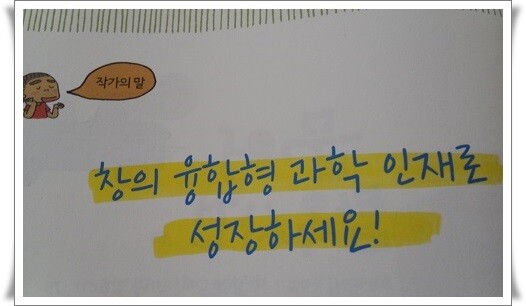 작가의 말
창의 융합형 과학 인재로
성장하세요!